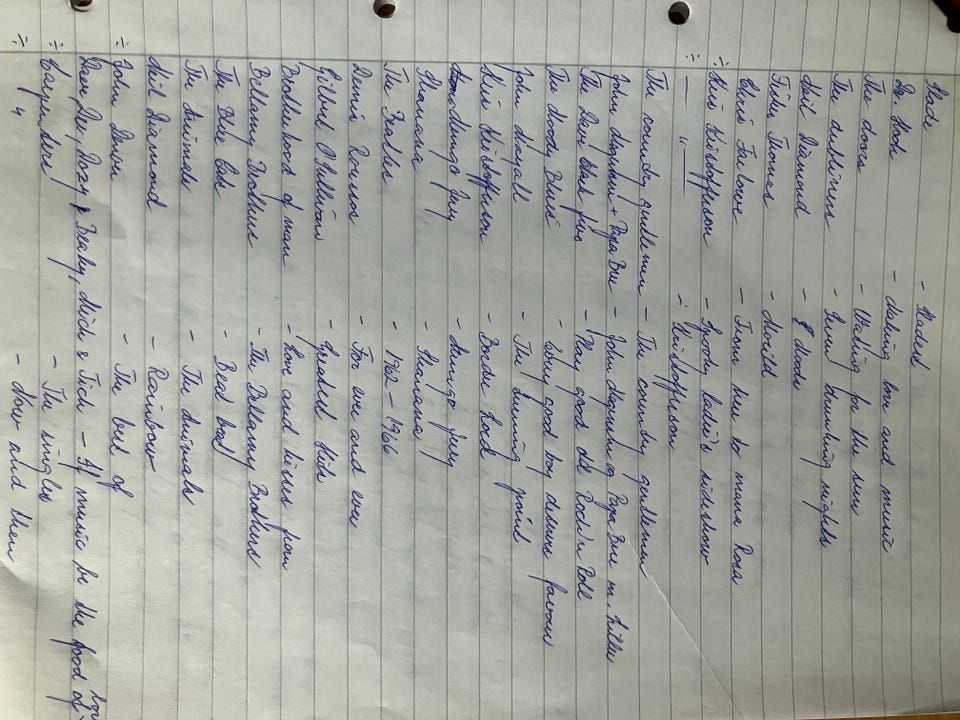 Slade - Sladest
Dr. Hook - Making love and music
The doors - Waiting for the sun
The dubliners - Seven drunken nights
Neil Diamond - 8 dads
Ticky Thomas - Mould
Chris Farlowe - From here to mama Rosa
÷ Kris Kristofferson - Spooky lady's sideshow
÷ — " — ÷ Kristofferson
The country gentlemen - The country gentlemen
John Mogensen + Papa Bue - John Mogensen og Papa Bue m. fl.
The Dave Clark five - Play good old Rock'n Roll
The Moody Blues - Every good boy deserves favour
John Mayall - The turning point
Kris Kristofferson - Border Lord
Mungo Jerry - Mungo Jerry
Shanana - Shanana
The Beatles - 1962 - 1966
Demis Roussos - For ever and ever
Gilbert O'Sullivan - Greatest hits
Brotherhood of man - Love and kisses from
Bellamy Brothers - The Bellamy Brothers
The Blue Cats - Best
The Animals - The Animals
Neil Diamond - Rainbow
÷ John Denver - The best of
Dave Dee, Dozy, Beaky, Mick & Tich - If music be the food of love
÷ Carpenters - The singles
÷ " - Now and then